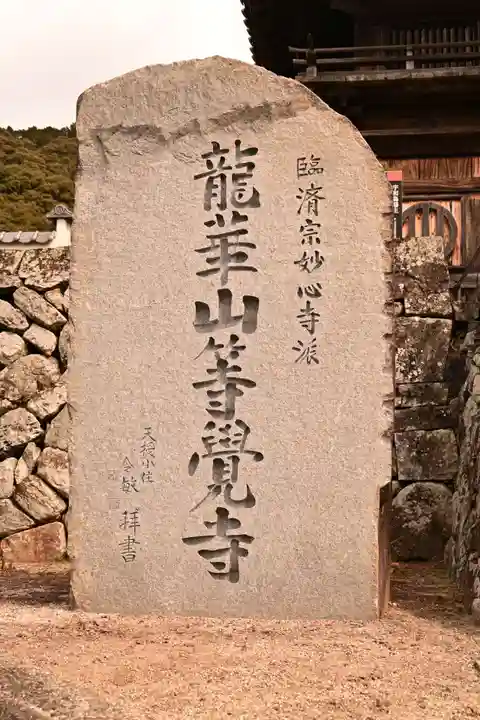 臨済宗妙心寺派
龍華山等覺寺
天授小住
令敏 拝書